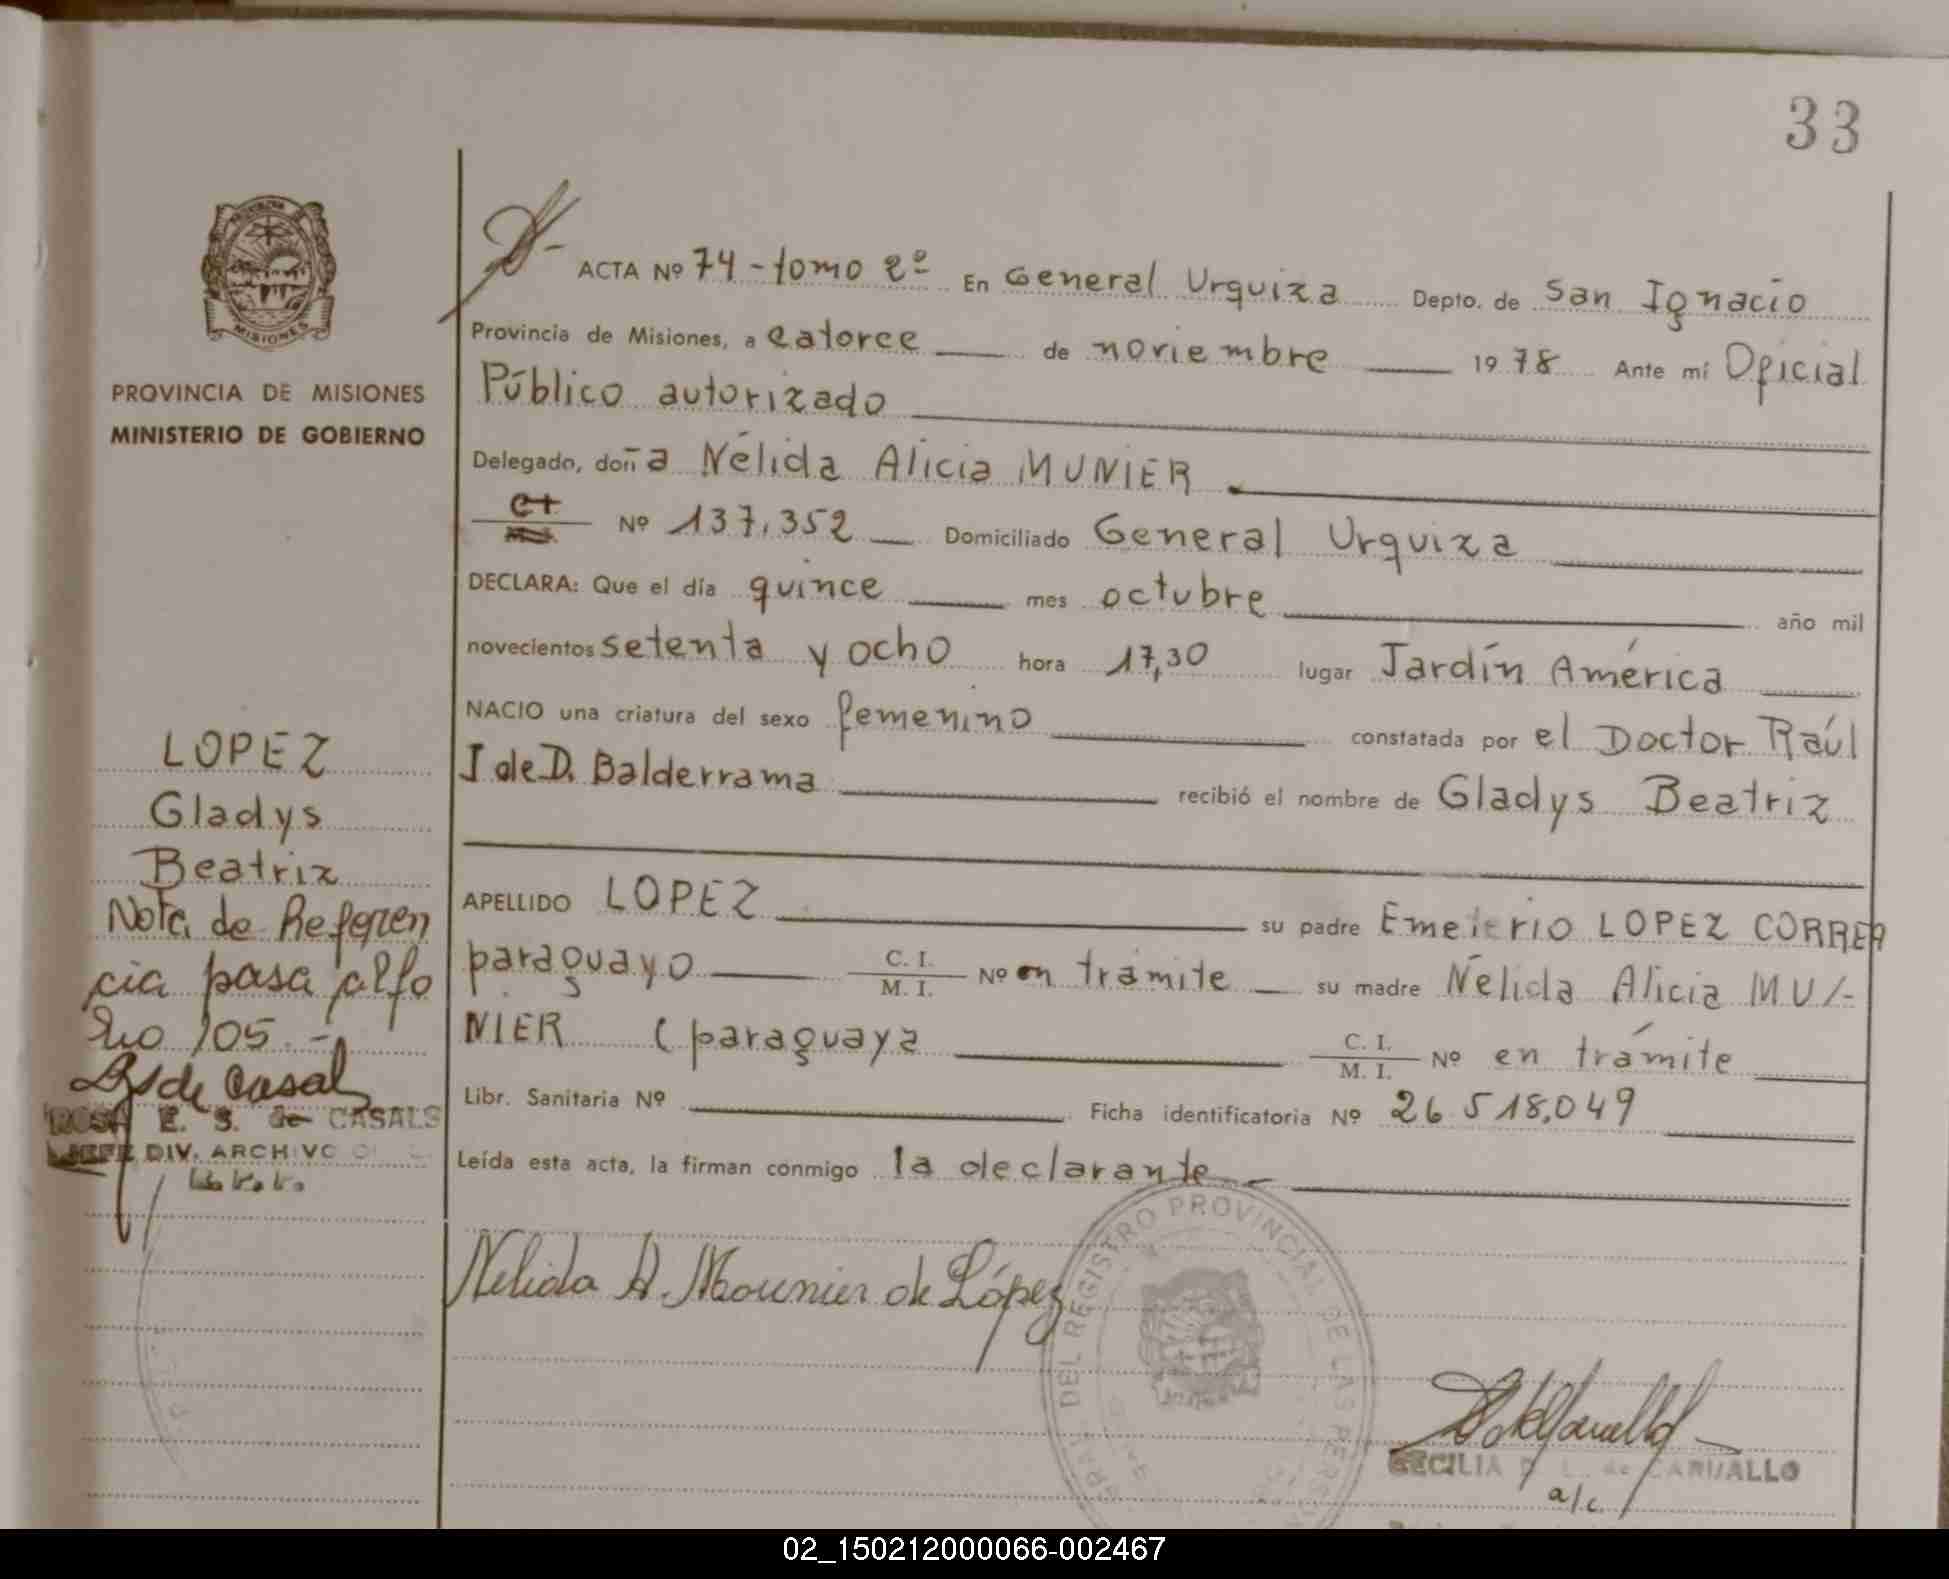 33
ACTA Nº 74 - tomo 2º En General Urquiza Depto. de San Ignacio
Provincia de Misiones, a catorce de noviembre 1978 Ante mi Oficial
Público autorizado
Delegado, doña Nélida Alicia MUNIER
Nº 137,352 Domiciliado General Urquiza
DECLARA: Que el día quince mes octubre año mil
novecientos setenta y ocho hora 17,30 lugar Jardín América
NACIO una criatura del sexo femenino constatada por el Doctor Raúl
J de D. Balderrama recibió el nombre de Gladys Beatriz
APELLIDO LOPEZ su padre Emeterio LOPEZ CORREA
paraguayo C. I. M. I. Nº en trámite su madre Nélida Alicia MU/-
NIER (paraguaya C. I. M. I. Nº en trámite
Libr. Sanitaria Nº Ficha identificatoria Nº 26.518,049
Leída esta acta, la firman conmigo la declarante
Nelida A. Mounier de López
CECILIA de CARVALLO
a/c.
MISIONES
PROVINCIA DE MISIONES
MINISTERIO DE GOBIERNO
LOPEZ
Gladys
Beatriz
Nota de Referen
cia pasa al fo
lio 105.-
de Casal
ROSA E. S. de CASALS
JEFE DIV. ARCHIVO
DEL REGISTRO PROVINCIAL DE LAS PERSON
02_150212000066-002467